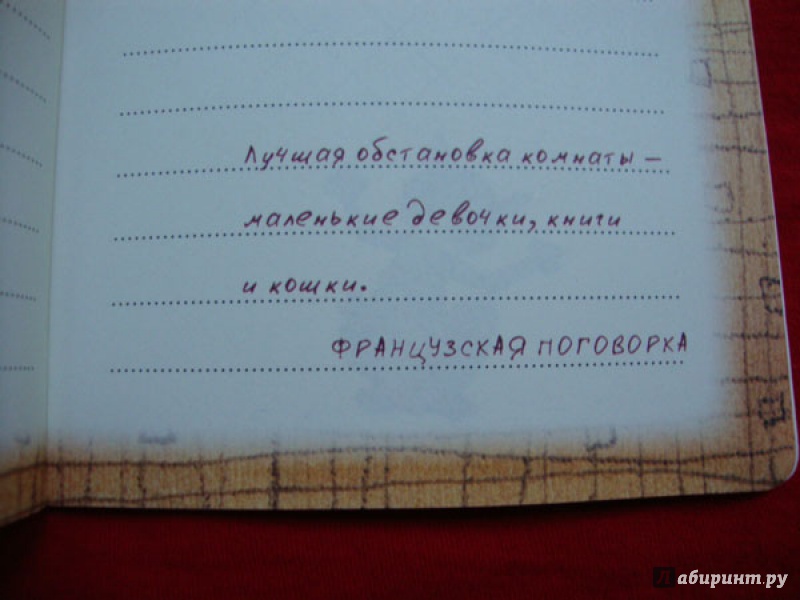 Лучшая обстановка комнаты –
маленькие девочки, книги
и кошки.
ФРАНЦУЗСКАЯ ПОГОВОРКА
Лабиринт.ру